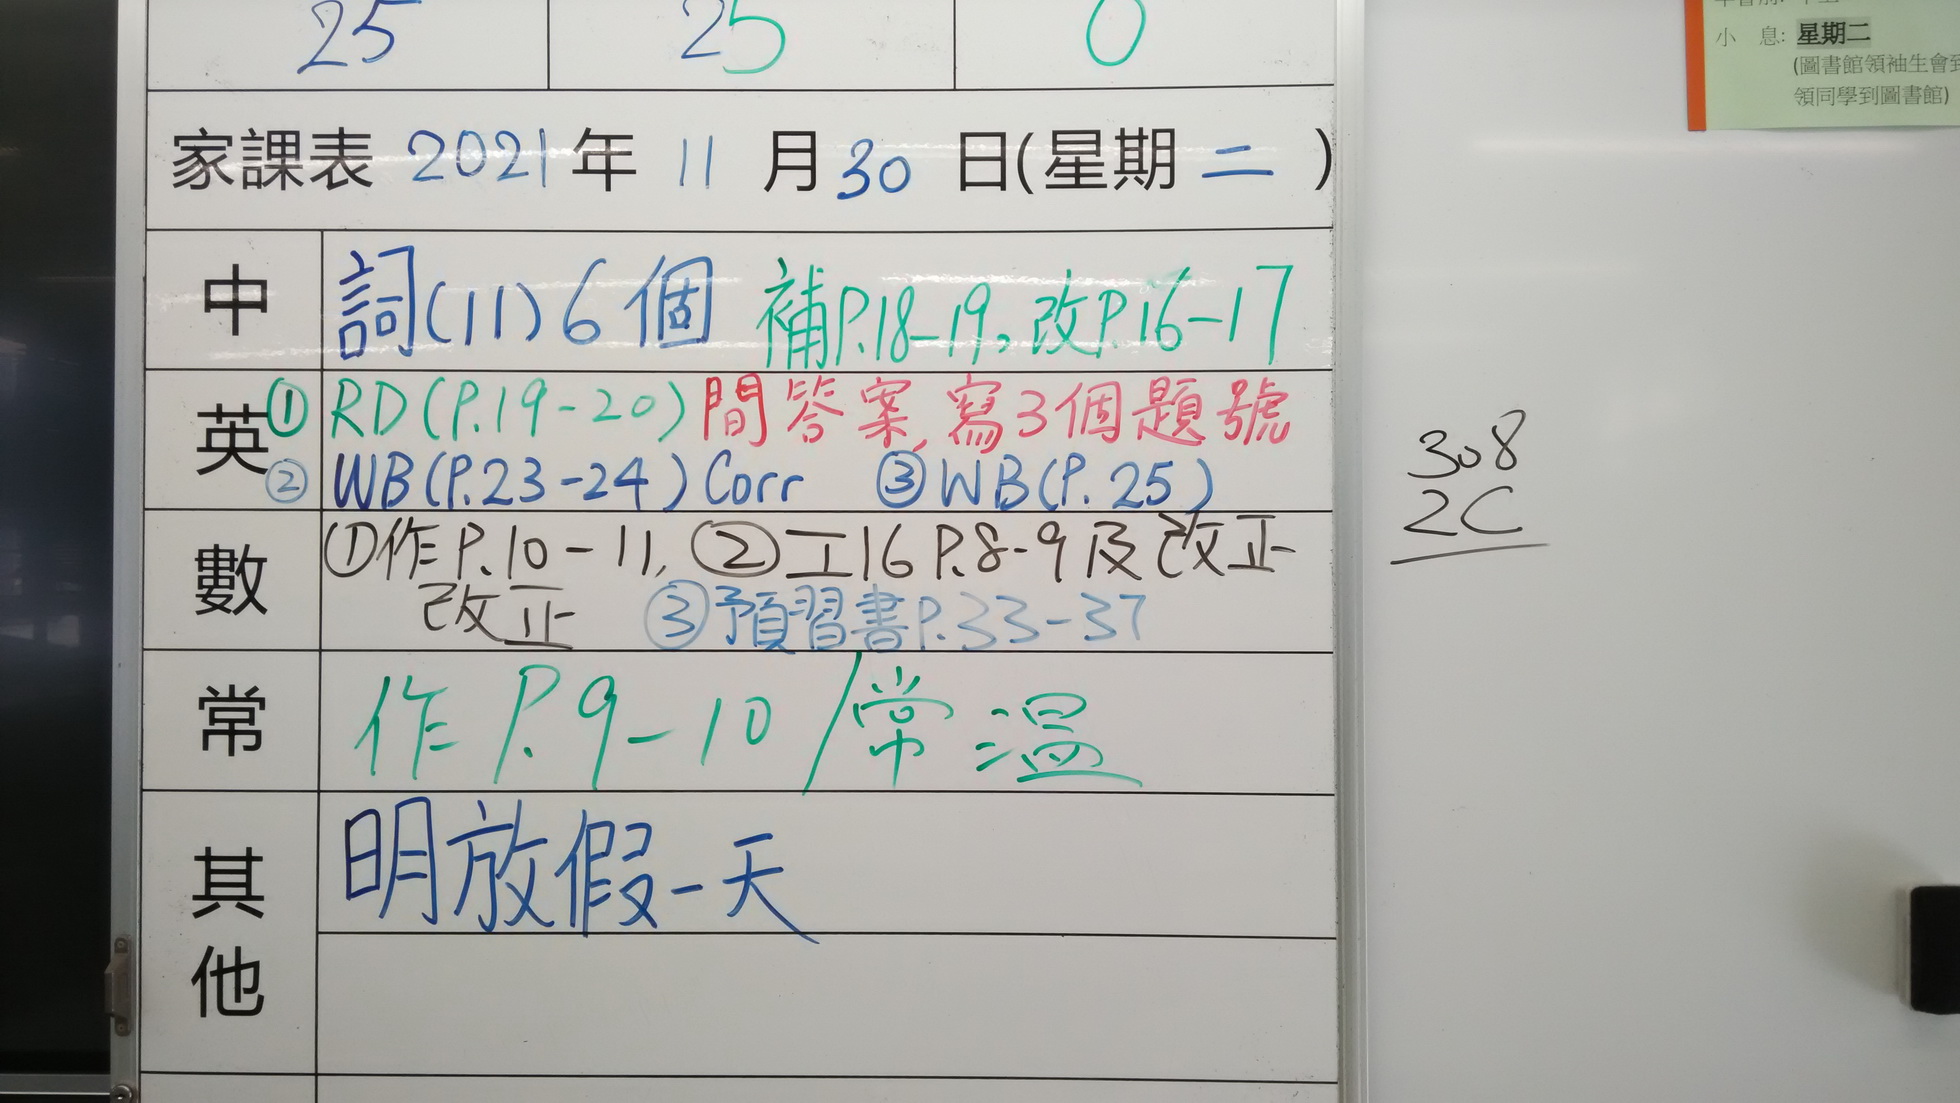 25 25 0
小 息: 星期二
(圖書館領袖生會到
領同學到圖書館)
家課表 2021年 11 月 30 日(星期 二 )
中 詞(11)6個 補P.18-19,改P.16-17
英 ① RD(P.19-20)間答案,寫3個題號
② WB(P.23-24)Corr ③WB(P.25)
數 ①作P.10-11, ②工16 P.8-9及改正
改正 ③預習書P.33-37
常 作 P.9-10/常溫
其他 明放假一天
308
2C